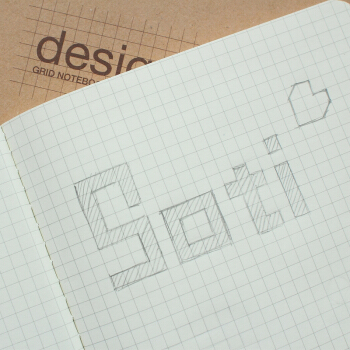 desig
GRID NOTEBO
Soti